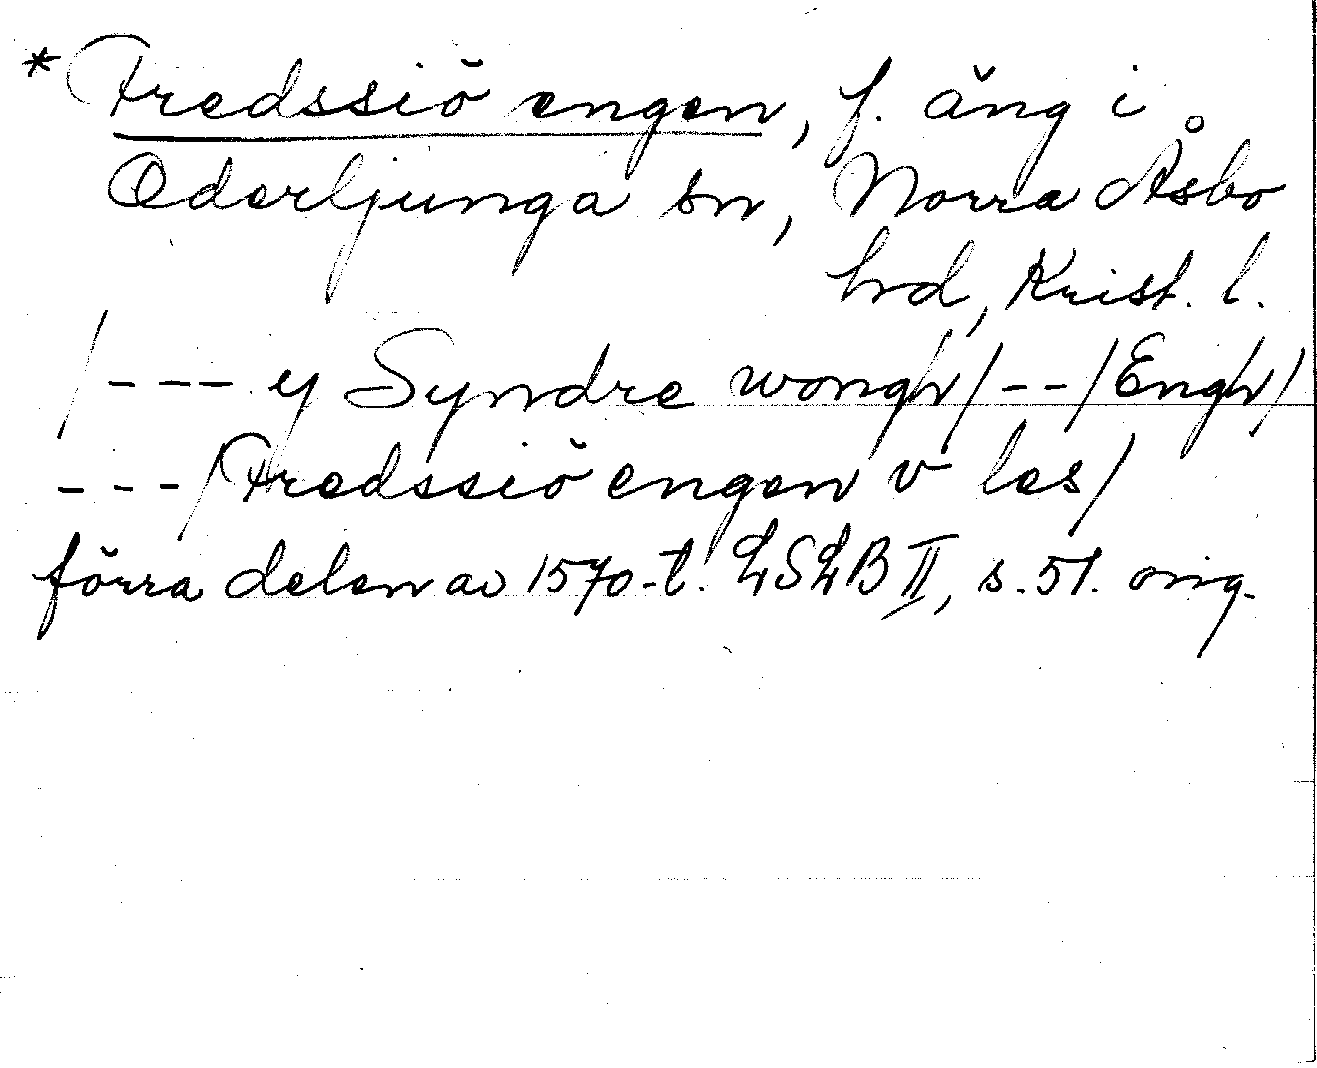 *Fredssiö engen, f. äng i
Oderljunga sn, Norra Åsbo
hrd, Krist. l.
/--- ij Syndre wongh/--/Engh/
---/Fredssiö engen v les/
förra delen av 1570-t. LSLB II, s. 51. orig.